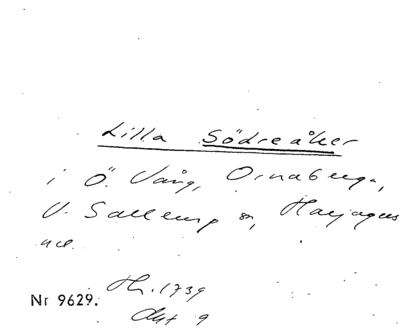 Lilla Södreåker
i Ö. Vång, Ornaberga,
V. Sallerup sn, Harjagers
hd.
Nr 9629. Hr. 1739
Akt 9